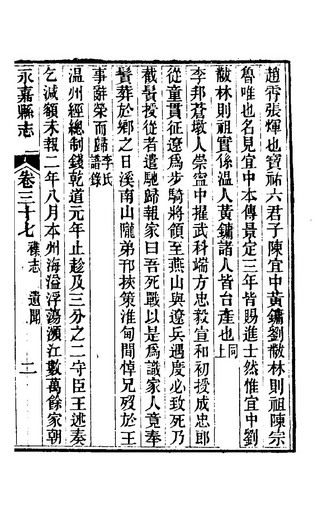 趙霄張煇也寶祐六君子陳宜中黃鏞劉黻林則祖陳宗
魯唯也名見宜中本傳景定三年皆賜進士然惟宜中劉
黻林則祖實係溫人黃鏞諸人皆台產也同上
李邦蒼墩人崇寧中擢武科端方忠毅宣和初授成忠郎
從童貫征遼爲步騎將領至燕山與遼兵遇度必致死乃
截鬚髮授從者遣馳歸報家曰吾死戰以是爲識家人竟奉
鬚葬於鄉之日溪南山隴弟邗挾策淮甸間悼兄歿於王
事辭榮而歸李氏譜錄
溫州經總制錢乾道元年止趁及三分之二守臣王逑奏
乞減額未報二年八月本州海溢浮蕩瀕江數萬餘家朝
永嘉縣志 卷三十七 雜志 遺聞 二